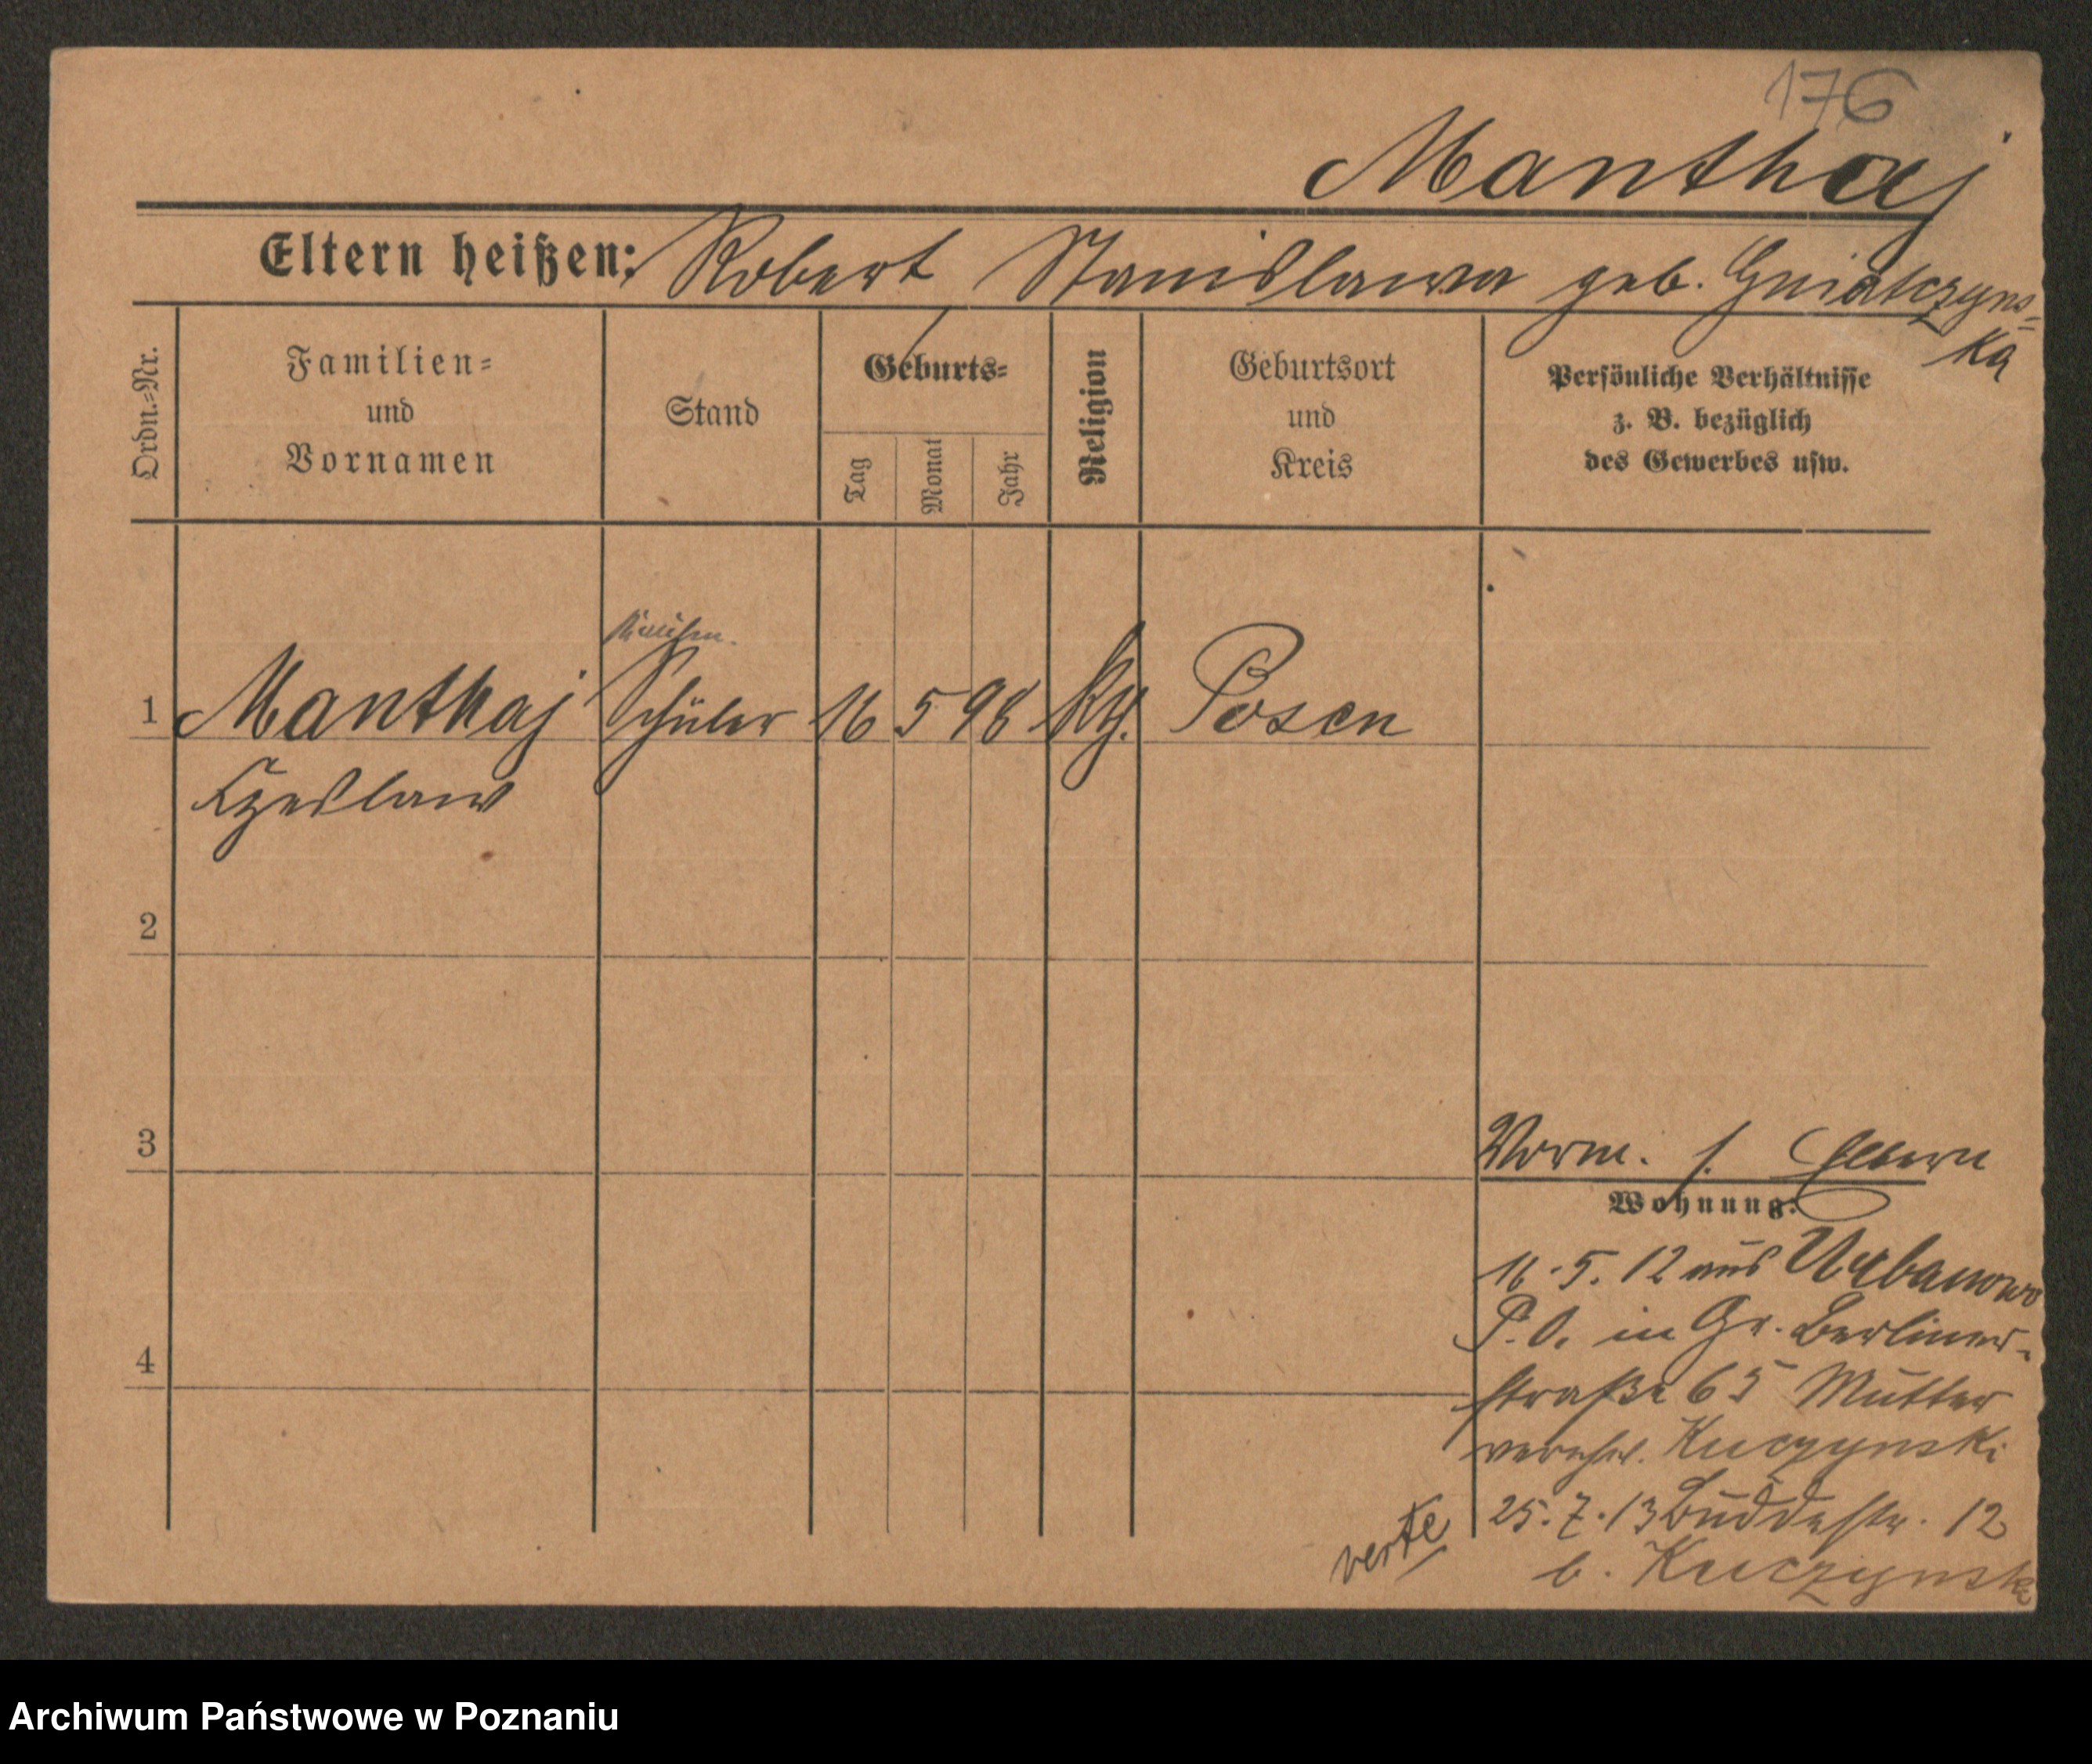 176
Manthaj
Eltern heißen: Robert Stanislawa geb. Gniatczyns=
ka
Ordn.=Nr.
Familien=
und
Vornamen
Stand
Geburts=
Tag
Monat
Jahr
Religion
Geburtsort
und
Kreis
Persönliche Verhältnisse
z. B. bezüglich
des Gewerbes usw.
1 Manthaj Schüler 16 5 98 kth. Posen
Czeslaw
2
3
Vorm. s. Eltern
Wohnung:
16.5.12 aus Urbanowo
P.O. in Gr. Berliner-
straße 65 Mutter
verehel. Kuczynski
4
25.7.13 Buddestr. 12
b. Kuczynski
verte
Archiwum Państwowe w Poznaniu